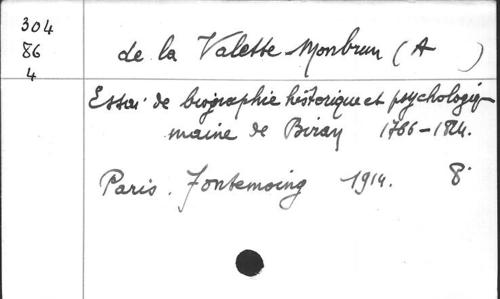 304
86
4
de la Valette-Monbrun (A )
Essai de biographie historique et psychologiq
maine de Biran 1766-1824.
Paris. Fontemoing 1914. 8°